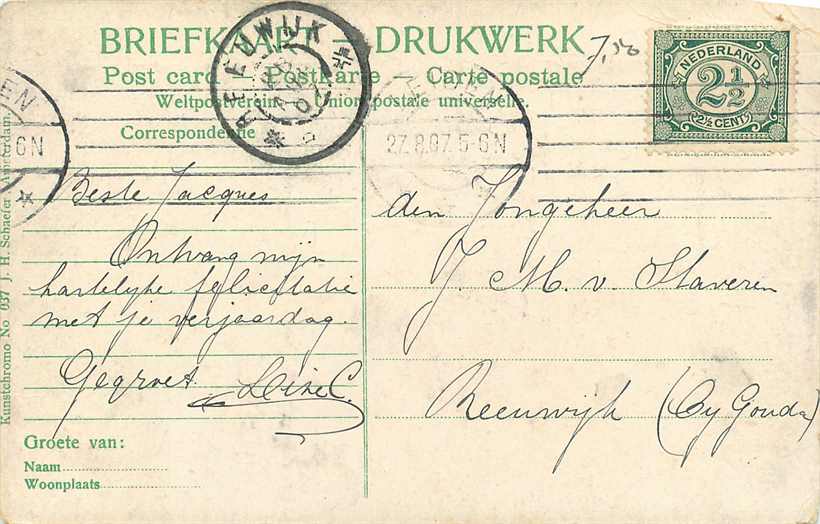 BRIEFKAART — DRUKWERK
Post card — Postkarte — Carte postale
Weltpostverein — Union postale universelle.
Correspondentie
7,50
NEDERLAND
2½
2½ CENT
REEUWIJK
27.8.07. 5-6N
6N
Beste Jacques
Ontvang mijn
hartelijke felicitatie
met je verjaardag.
Gegroet
den Jongeheer
J. M. v. Staveren
Reeuwijk (By Gouda)
Groete van:
Naam
Woonplaats
Kunstchromo No 037 J. H. Schaefer Amsterdam.